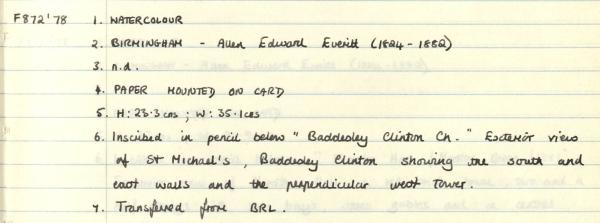 F872'78 1. WATERCOLOUR
2. BIRMINGHAM - Allen Edward Everitt (1824 - 1882)
3. n.d.
4. PAPER MOUNTED ON CARD
5. H: 23.3 cms ; W: 35.1 cms
6. Inscribed in pencil below "Baddesley Clinton Ch." Exterior view
of St Michael's, Baddesley Clinton showing the south and
east walls and the perpendicular west tower.
7. Transferred from BRL.